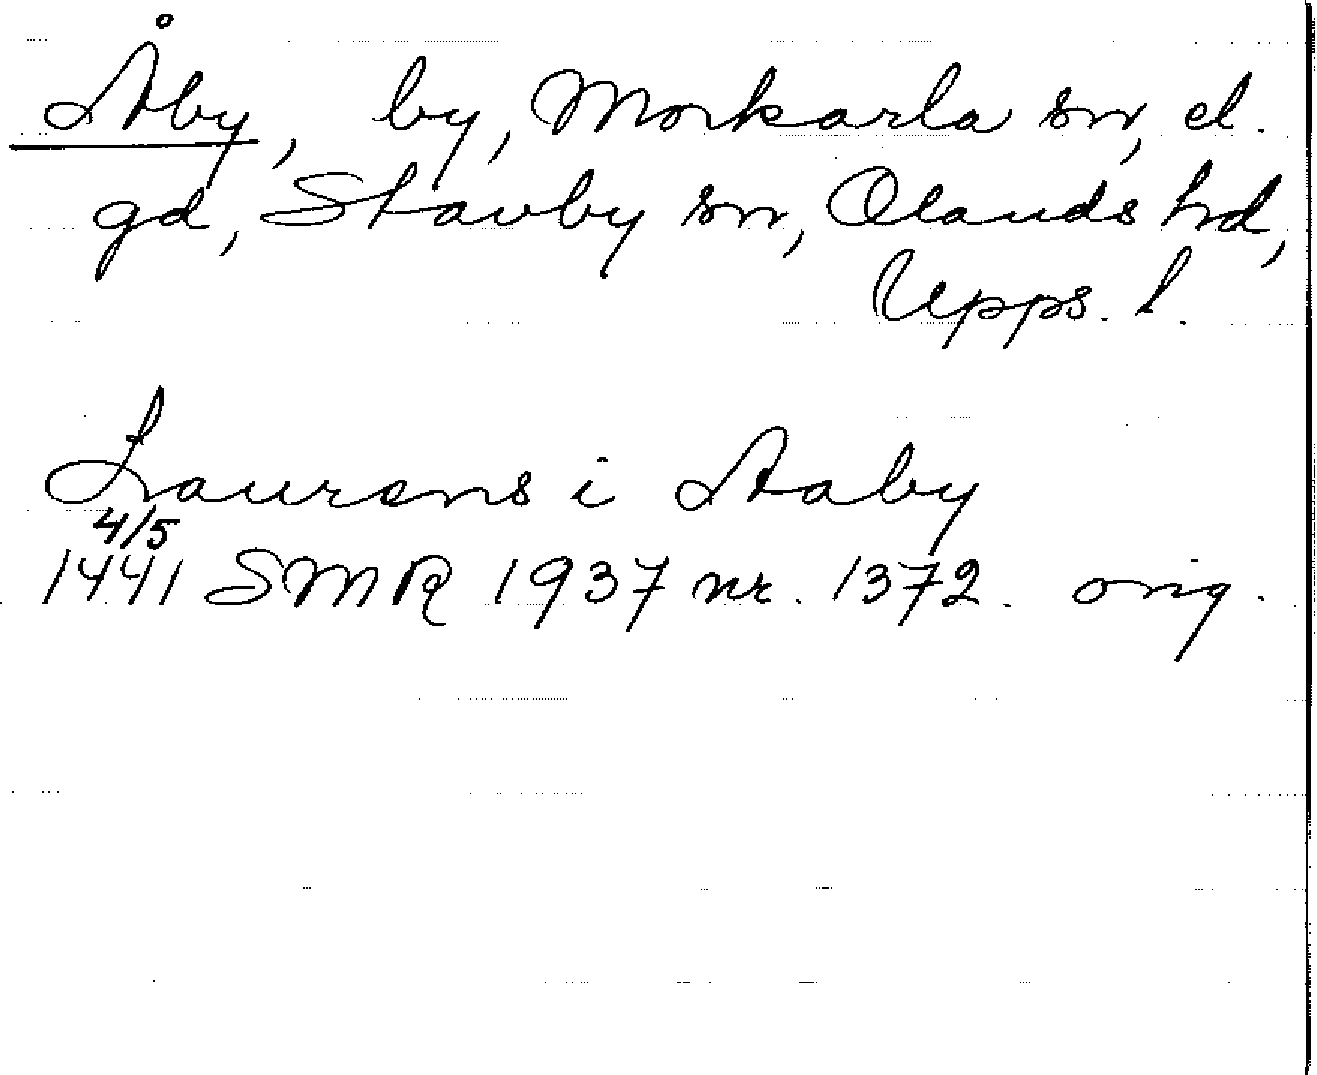 Åby, by, Morkarla sn, el.
gd, Stavby sn, Olands hd,
Upps. l.
Laurens i Aaby
4/5
1441 SMR 1937 nr. 1372. orig.